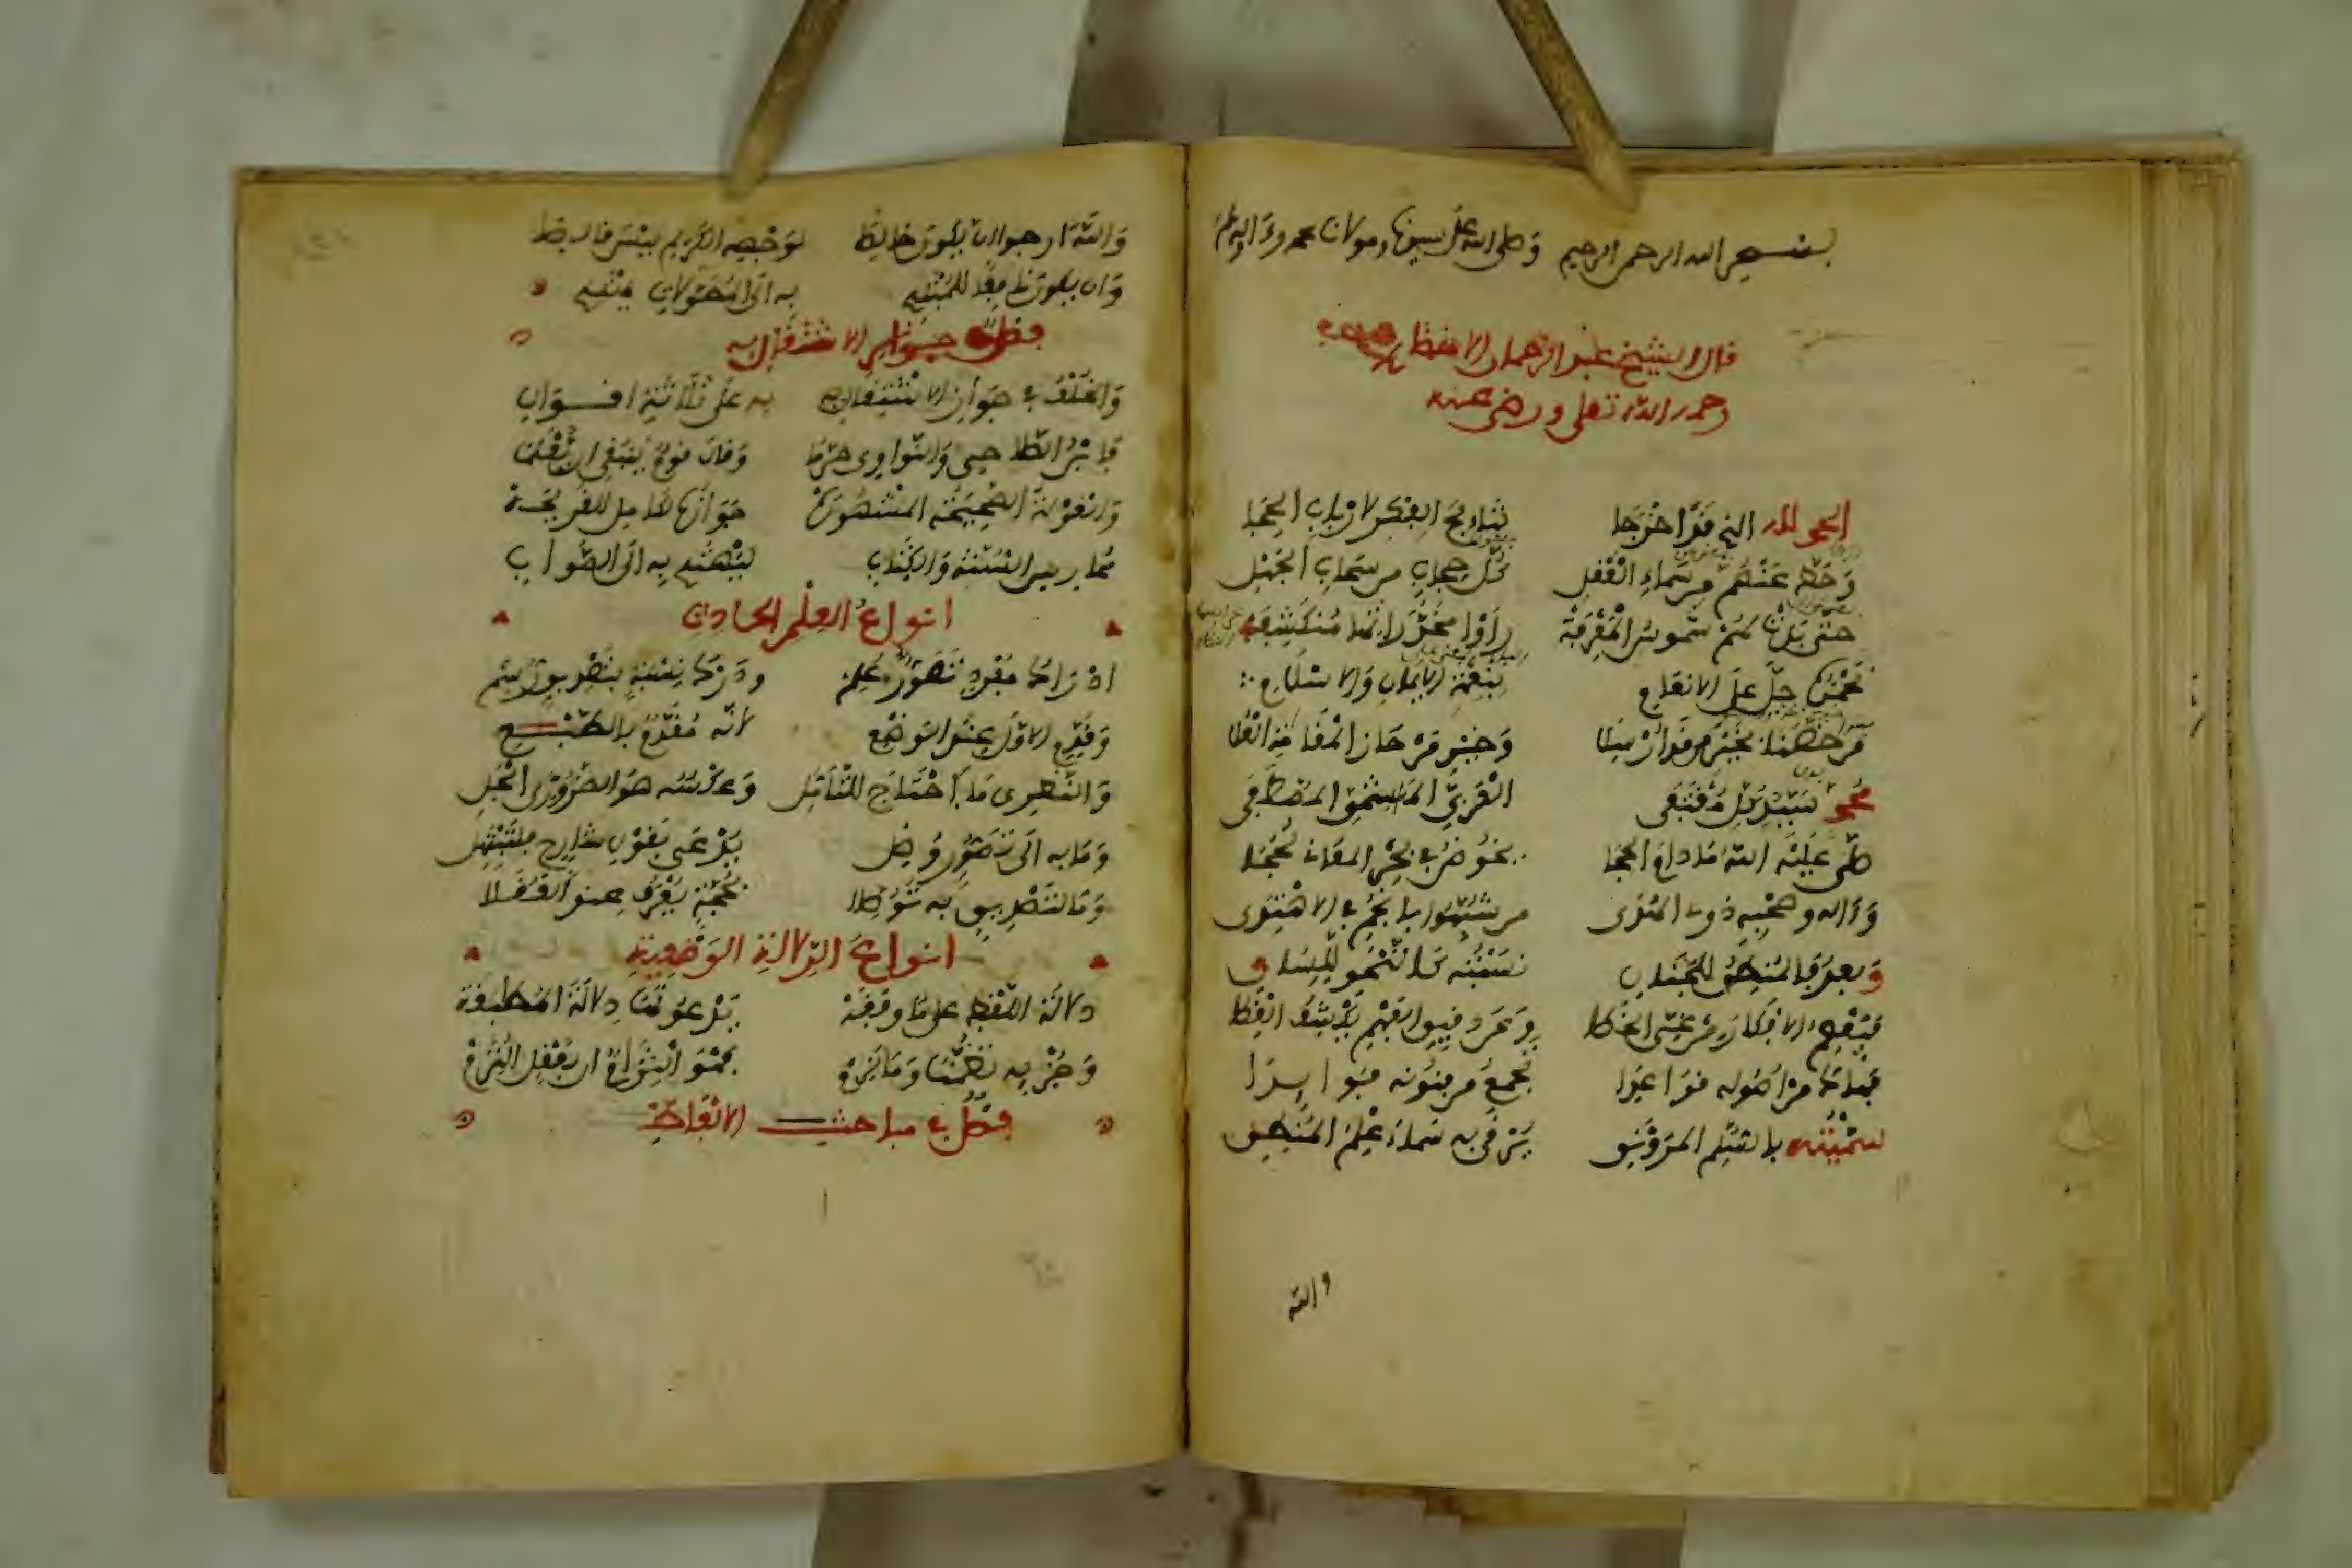 بسم الله الرحمن الرحيم وصلى الله على سيدنا ومولانا محمد وءاله
قال الشيخ عبد الرحمان الاخضري
رحمه الله تعلى ورضي عنه
الحمد لله الذي قد اخرجا نتائج الفكر لارباب الحجا
وحط عنهم من سماء العقل كل حجاب من سحاب الجهل
حتى بدت لهم شموس المعرفة راوا مخدراتها منكشفه
نحمده جل على الانعام بنعمة الايمان والاسلام
من خصنا بخير من قد ارسلا وخير من حاز المقامات العلا
محمد سيد كل مقتفى العربي الهاشمي المصطفى
صلى عليه الله ما دام الحجا يخوض في بحر المعاني لججا
وءاله وصحبه ذوي الهدى من شبهوا بانجم في الاهتدى
وبعد فالمنطق للجنان نسبته كالنحو للسان
فيعصم الافكار عن غي الخطا وعن دقيق الفهم يكشف الغطا
فهاك من اصوله قواعدا تجمع من فنونه فوايدا
سميته بالسلم المرونق يرقى به سماء علم المنطق
والله
والله ارجو ان يكون خالصا لوجهه الكريم ليس قالصا
وان يكون نافعا للمبتدي به الى المطولات يهتدي
فصل في جواز الاشتغال به
والخلف في جواز الاشتغال به على ثلاثة اقوال
فابن الصلاح والنواوي حرما وقال قوم ينبغي ان يعلما
والقولة الصحيحة المشهورة جوازه لكامل القريحة
ممارس السنة والكتاب ليهتدي به الى الصواب
انواع العلم الحادث
ادراك مفرد تصورا علم ودرك نسبة بتصديق وسم
وقدم الاول عند الوضع لانه مقدم بالطبع
والنظري ما احتاج للتامل وعكسه هو الضروري الجلي
وما به الى تصور وصل يدعى بقول شارح فلتبتهل
وما لتصديق به توصلا بحجة يعرف عند العقلا
انواع الدلالة الوضعية
دلالة اللفظ على ما وافقه يدعونها دلالة المطابقة
وجزئه تضمنا وما لزم فهو التزام ان بعقل التزم
فصل في مباحث الالفاظ